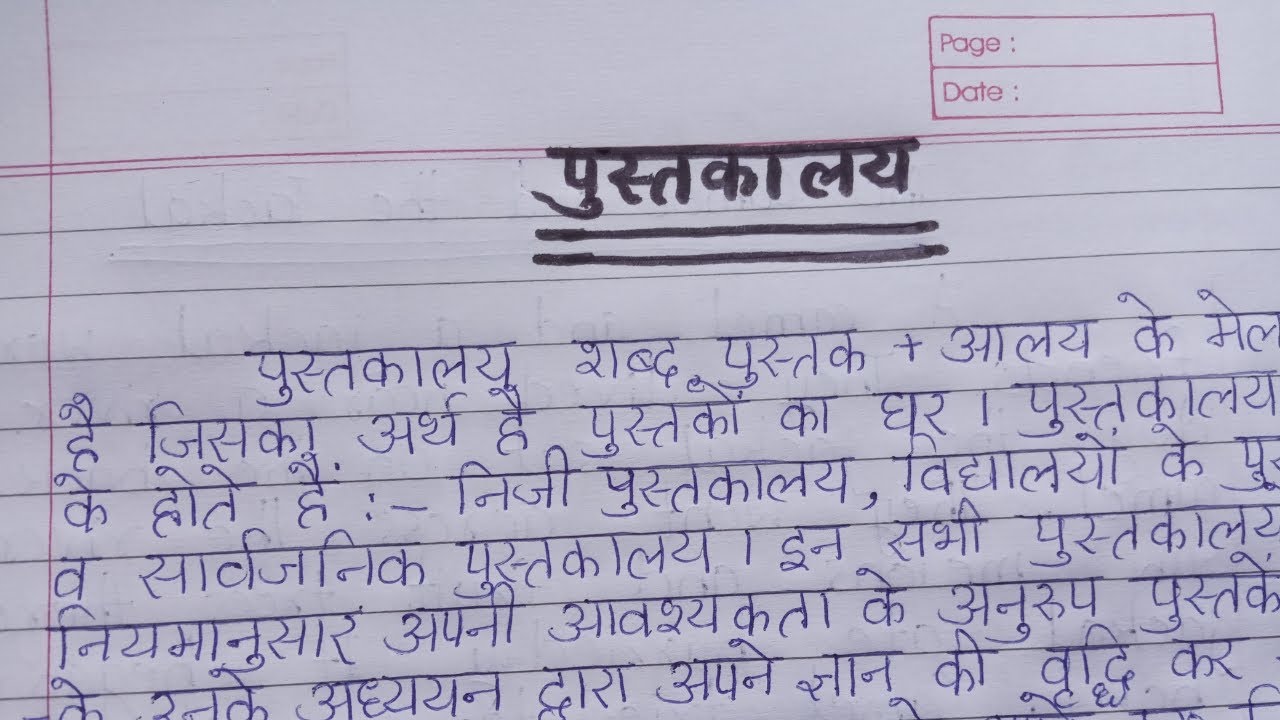 Page :
Date :
पुस्तकालय
पुस्तकालय शब्द पुस्तक + आलय के मेल
है जिसका अर्थ है पुस्तकों का घर । पुस्तकालय
के होते हैं :- निजी पुस्तकालय, विद्यालयों के
व सार्वजनिक पुस्तकालय । इन सभी पुस्तकालय
नियमानुसार अपनी आवश्यकता के अनुरुप पुस्तकें
उनके अध्ययन द्वारा अपने ज्ञान की वृद्धि कर